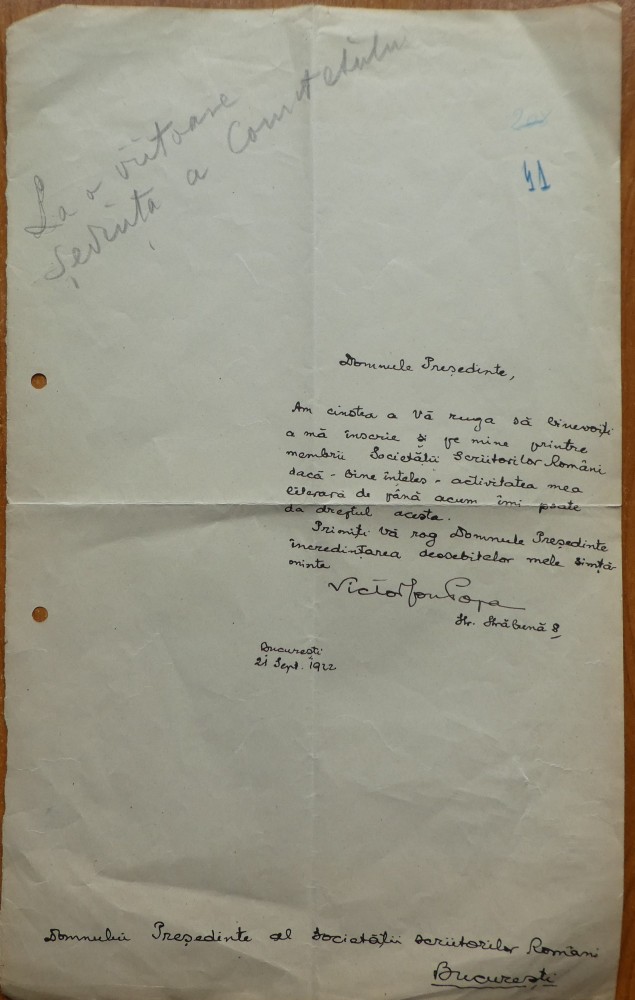 La o viitoare
ședința a Comitetului
41
Domnule Președinte,
Am cinstea a Vă ruga să binevoiți
a mă înscrie și pe mine printre
membrii Societății Scriitorilor Români
dacă - bine înțeles - activitatea mea
literară de până acum îmi poate
da dreptul acesta.
Primiți vă rog Domnule Președinte
încredințarea deosebitelor mele simță-
minte
Victor Ion Popa
Str. Străbună 8
București
21 Sept. 1922
Domnului Președinte al Societății Scriitorilor Români
București